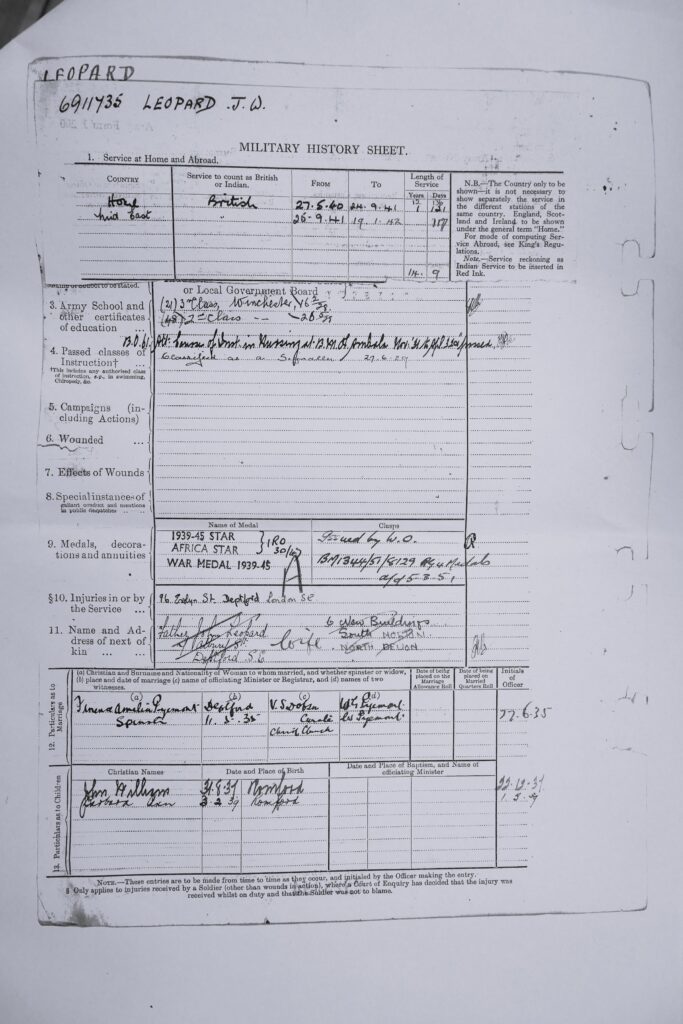 LEOPARD
6911735 LEOPARD J.W.
MILITARY HISTORY SHEET.
1. Service at Home and Abroad.
COUNTRY
Service to count as British or Indian.
FROM
TO
Length of Service
Years Days
Home British 27.5.40 24.9.41 1 121
Mid East " 25-9.41 19.1.42 117
14 9
N.B.—The Country only to be
shown—it is not necessary to
show separately the service in
the different stations of the
same country. England, Scot-
land and Ireland to be shown
under the general term "Home."
For mode of computing Ser-
vice Abroad, see King's Regu-
lations.
Note.—Service reckoning as
Indian Service to be inserted in
Red Ink.
or Local Government Board
3. Army School and
other certificates
of education ...
(21) 3rd Class, Winchester
(48) 2nd Class
4. Passed classes of
Instruction†
†This includes any authorised class
of instruction, e.g., in swimming,
Chiropody, &c.
in Nursing at B.M.H. passed
Classified as a 27.6.29
5. Campaigns (in-
cluding Actions)
6. Wounded ...
7. Effects of Wounds
8. Special instances of
gallant conduct and mentions
in public despatches ...
9. Medals, decora-
tions and annuities
Name of Medal
Clasps
1939-45 STAR
AFRICA STAR
WAR MEDAL 1939-45
1RO
30/
A
Issued by W.O.
BM1344/51/8129 Medals
5-3-51
§10. Injuries in or by
the Service ...
96 Evelyn St. Deptford London SE
11. Name and Ad-
dress of next of
kin ... ...
Father John Leopard
Deptford S.E
Wife
6 New Buildings
SOUTH MOLTON
NORTH DEVON
12. Particulars as to Marriage
(a) Christian and Surname and Nationality of Woman to whom married, and whether spinster or widow,
(b) place and date of marriage (c) name of officiating Minister or Registrar, and (d) names of two
witnesses.
Date of being placed on the Marriage Allowance Roll
Date of being placed on Married Quarters Roll
Initials of Officer
(a) (b) (c) (d)
Amelia Pyemont Deptford
Spinster 11.5.35 Curate
Christ Church
27.6.35
13. Particulars as to Children
Christian Names
Date and Place of Birth
Date and Place of Baptism, and Name of officiating Minister
John William 31.8.37 Romford 22.12.37
Barbara Ann 3.2.39 Romford 1.3.39
NOTE.—These entries are to be made from time to time as they occur, and initialed by the Officer making the entry.
§ Only applies to injuries received by a Soldier (other than wounds in action), where a Court of Enquiry has decided that the injury was
received whilst on duty and that the Soldier was not to blame.